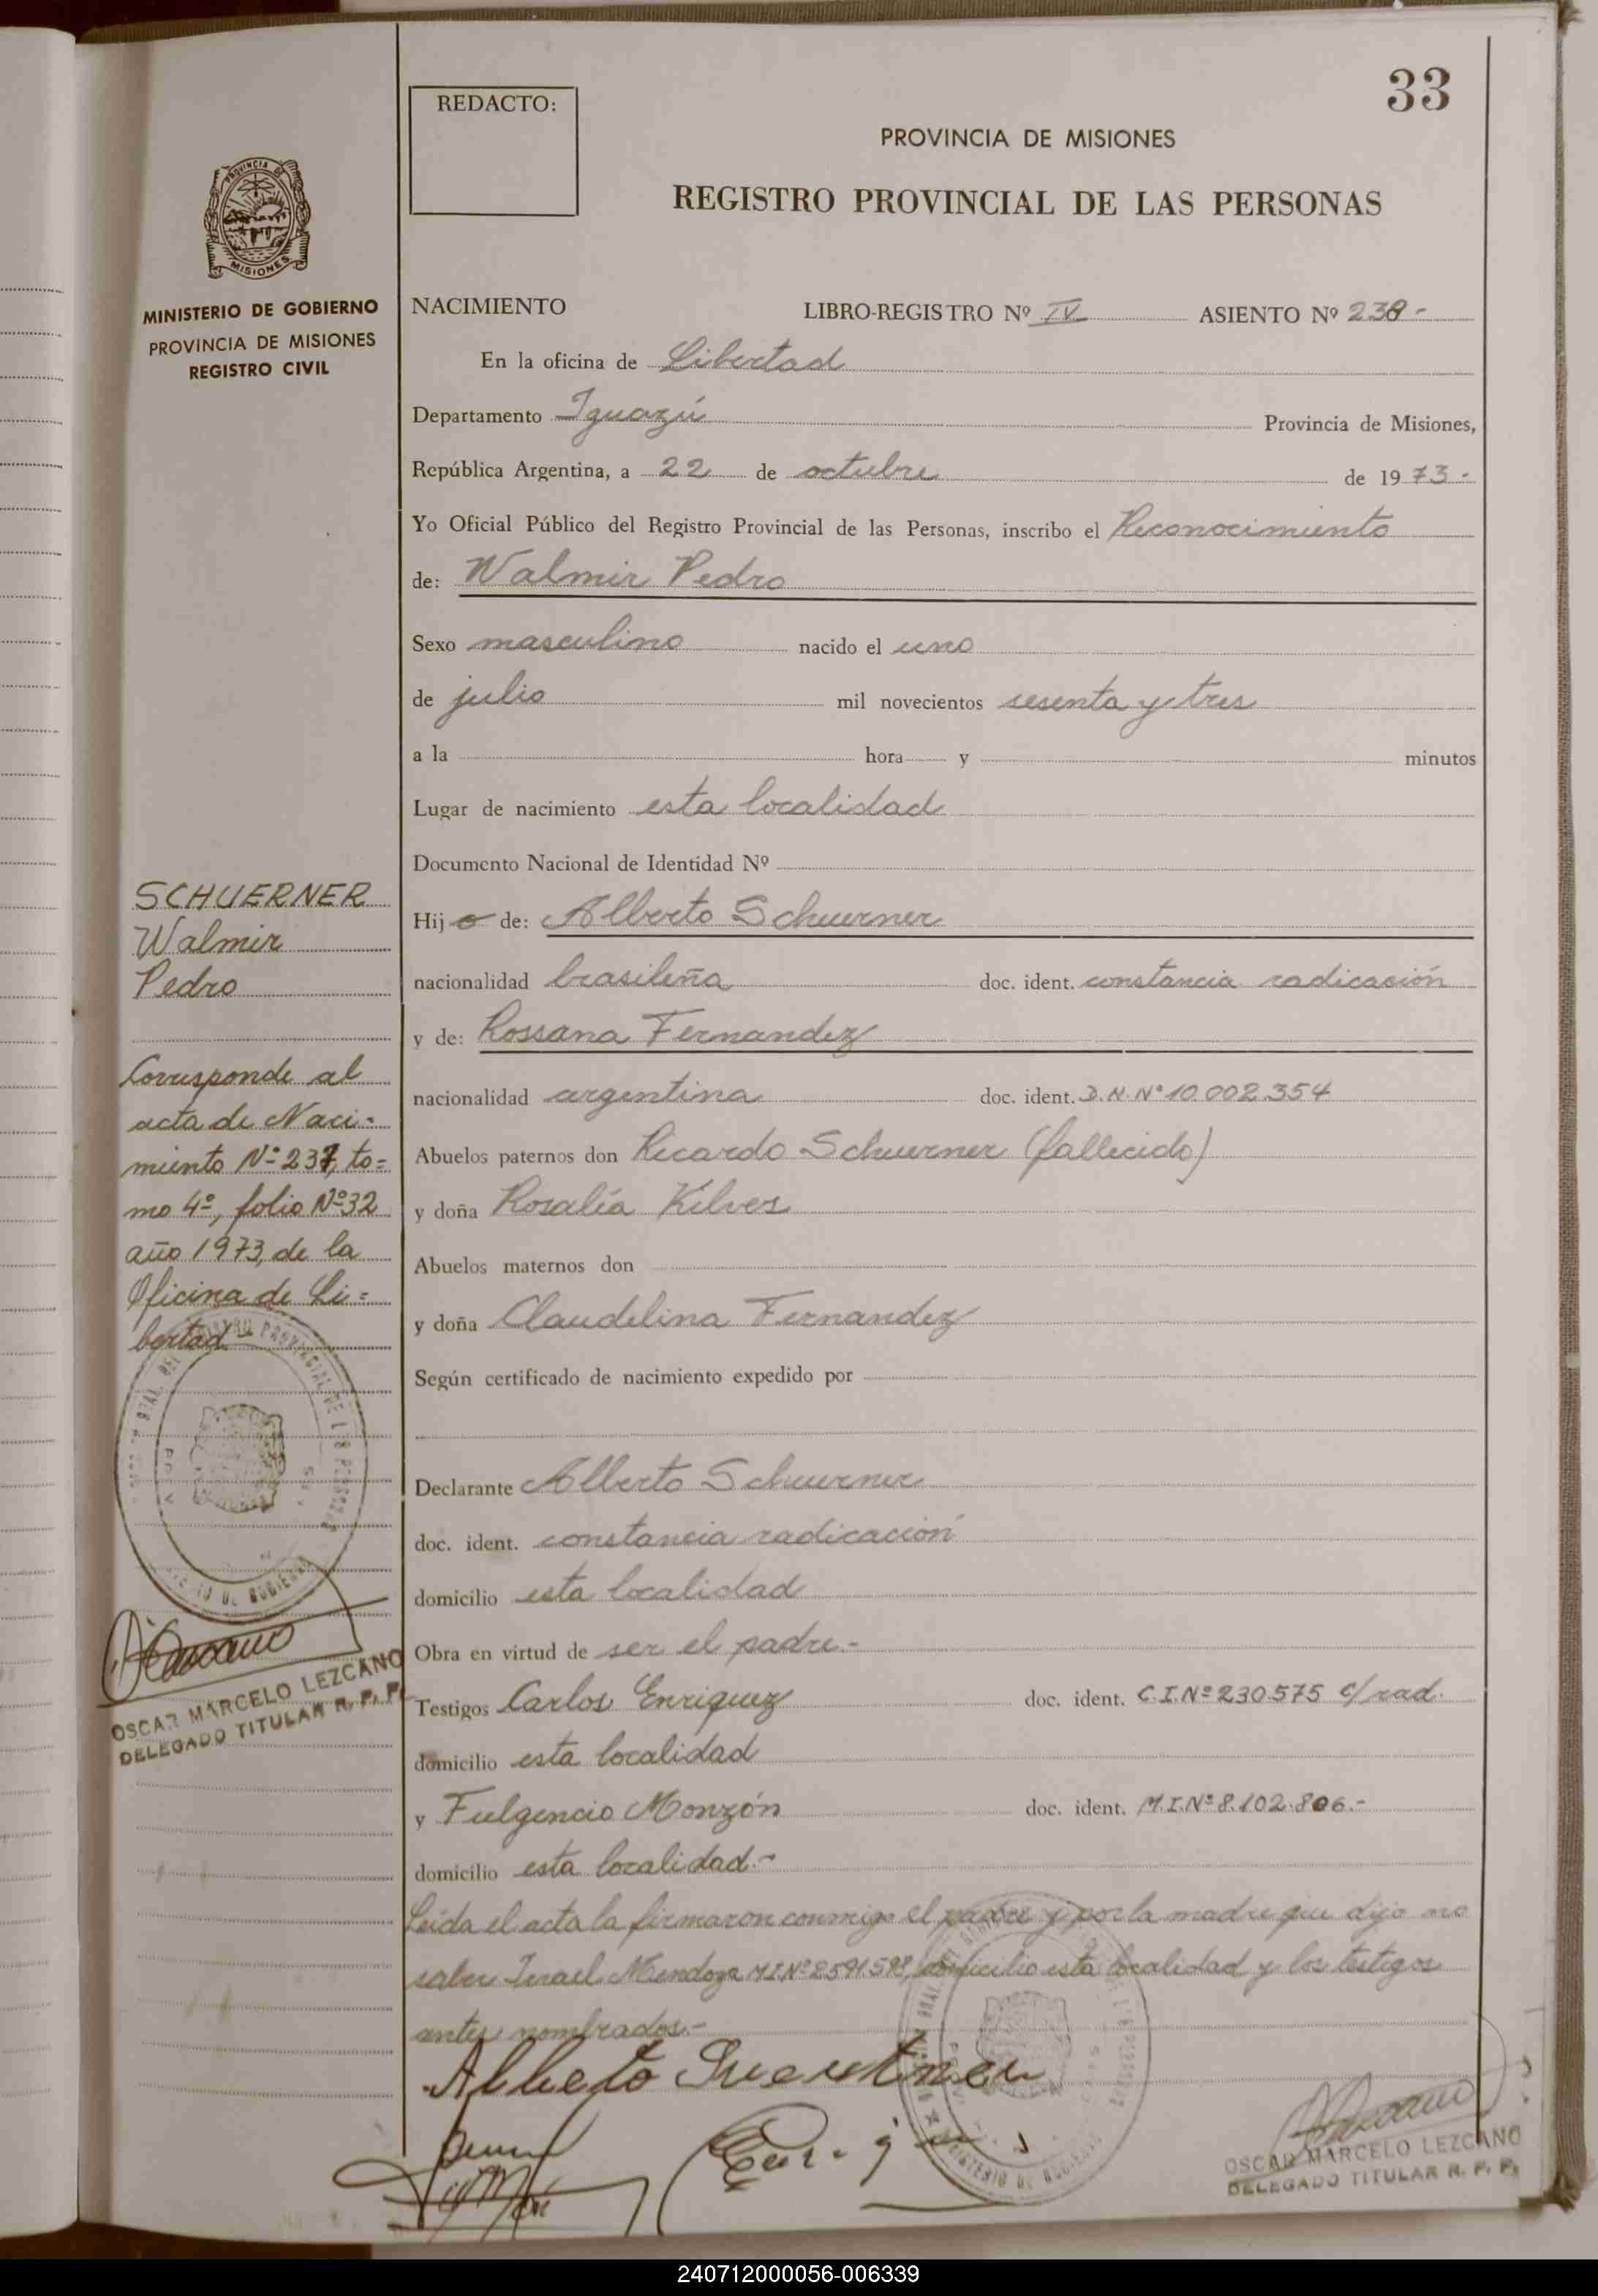 33
REDACTO:
PROVINCIA DE MISIONES
REGISTRO PROVINCIAL DE LAS PERSONAS
PROVINCIA DE
MISIONES
MINISTERIO DE GOBIERNO
PROVINCIA DE MISIONES
REGISTRO CIVIL
NACIMIENTO LIBRO-REGISTRO Nº IV ASIENTO Nº 238-
En la oficina de Libertad
Departamento Iguazú Provincia de Misiones,
República Argentina, a 22 de octubre de 1973-
Yo Oficial Público del Registro Provincial de las Personas, inscribo el Reconocimiento
de: Walmir Pedro
Sexo masculino nacido el uno
de julio mil novecientos sesenta y tres
a la hora y minutos
Lugar de nacimiento esta localidad
Documento Nacional de Identidad Nº
Hijo de: Alberto Schuerner
nacionalidad brasileña doc. ident. constancia radicación
y de: Rossana Fernandez
nacionalidad argentina doc. ident. D.N.Nº 10.002.354
Abuelos paternos don Ricardo Schuerner (fallecido)
y doña Rosalía Kilves
Abuelos maternos don
y doña Claudelina Fernandez
Según certificado de nacimiento expedido por
Declarante Alberto Schuerner
doc. ident. constancia radicación
domicilio esta localidad
Obra en virtud de ser el padre.-
Testigos Carlos Enriquez doc. ident. C.I.Nº 230.575 c/rad.
domicilio esta localidad
y Fulgencio Monzón doc. ident. M.I.Nº 8.102.806.-
domicilio esta localidad.-
Leída el acta la firmaron conmigo el padre y por la madre que dijo no
saber Israel Mendoza M.I.Nº 2591.598, domicilio esta localidad y los testigos
antes nombrados.-
SCHUERNER
Walmir
Pedro
Corresponde al
acta de Naci-
miento Nº 237, to=
mo 4º, folio Nº 32
año 1973, de la
Oficina de Li=
bertad
OSCAR MARCELO LEZCANO
DELEGADO TITULAR R. P. P.
Alberto
OSCAR MARCELO LEZCANO
DELEGADO TITULAR R. P. P.
240712000056-006339